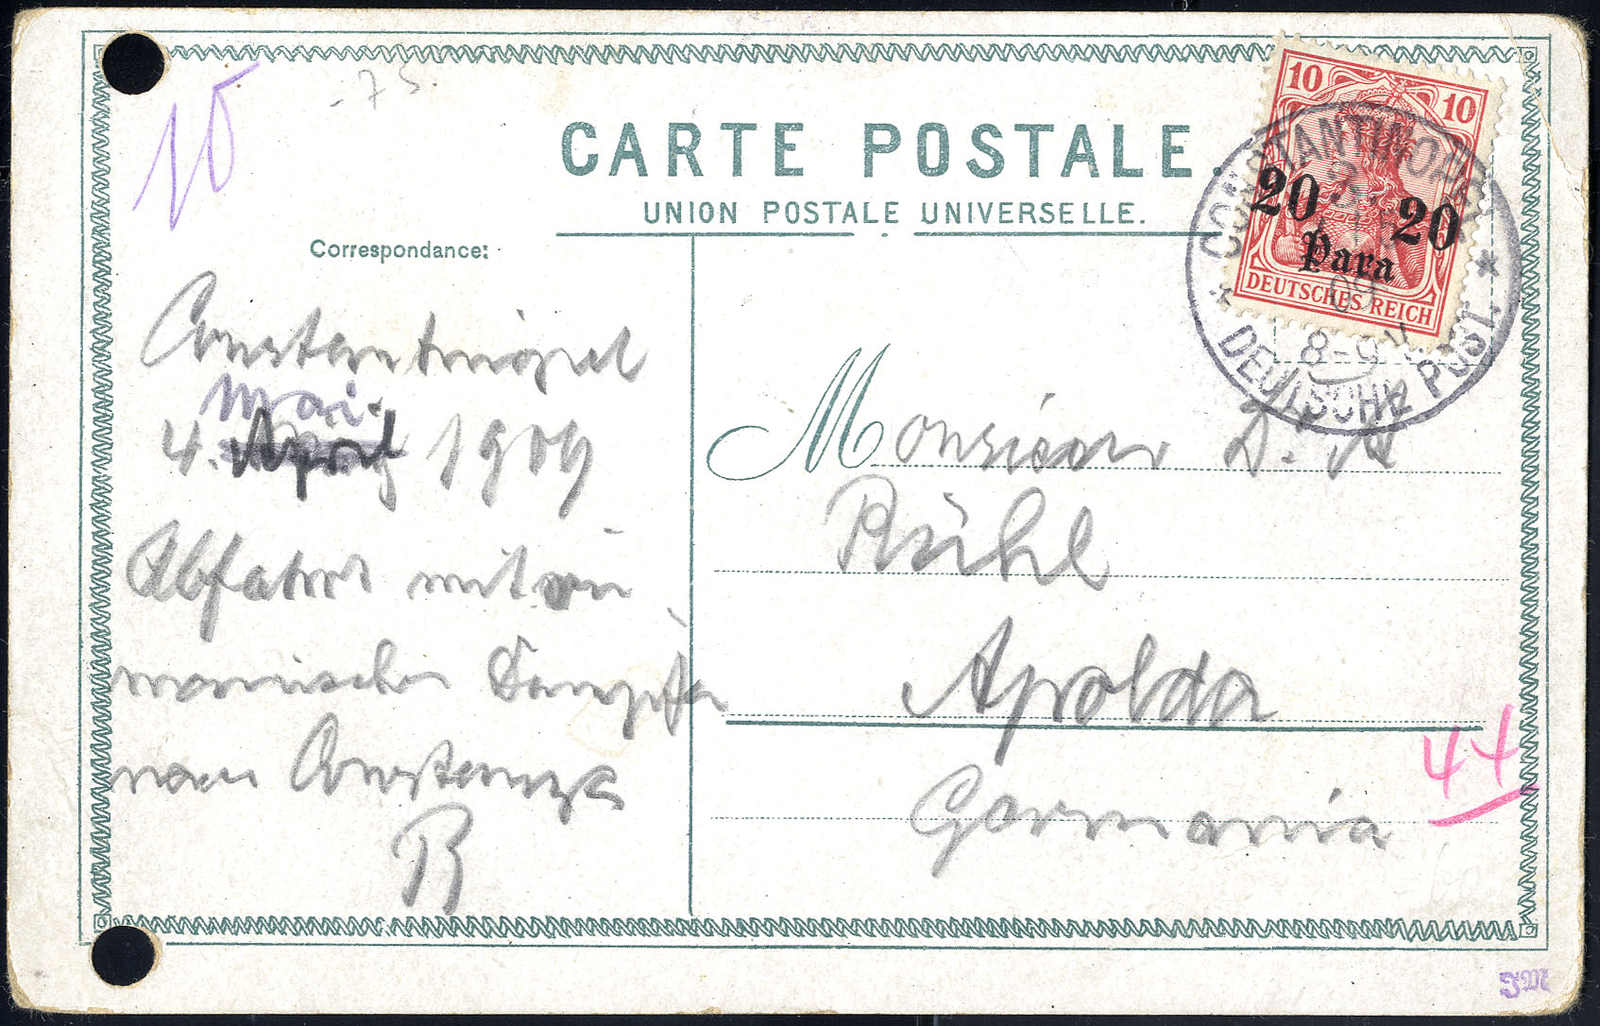 10
-75.
CARTE POSTALE.
UNION POSTALE UNIVERSELLE.
Correspondance:
Constantinopel
Mai.
4. April 1909
Abfahrt mit ru
mänischen Dampfer
nach Constanza
R
10 10
20 20
Para
DEUTSCHES REICH
CONSTANTINOPEL
09
8-9
DEUTSCHE POST.
Monsieur D. A
Rühl
Apolda
Germania
44